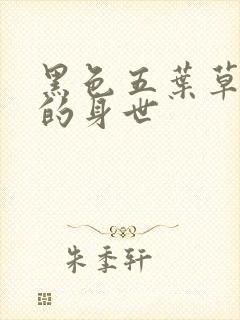 黑色五葉草
的身世
朱季轩